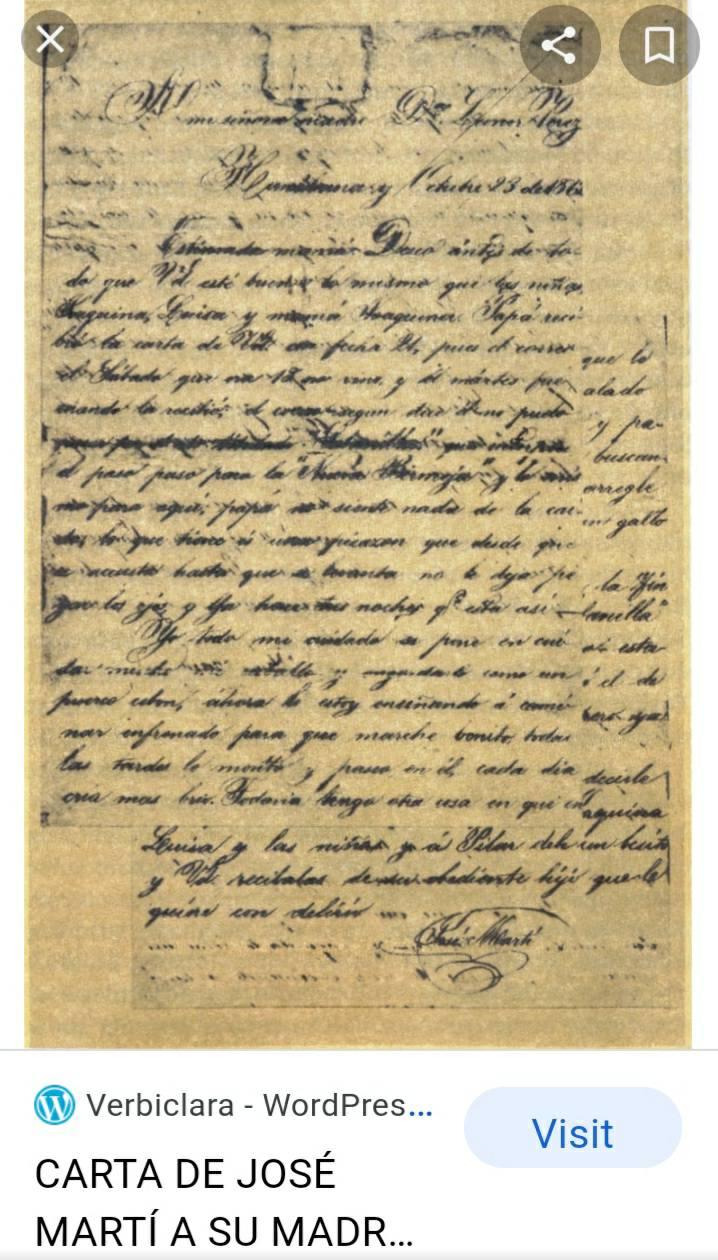 mi señora madre Da. Leonor Pérez
Hanábana y Octubre 23 de 186
Estimada mamá: Deseo antes de to-
do que Vd. esté buena lo mismo que las niñas,
Joaquina, Luisa y mamá Joaquina. Papá reci-
bió la carta de Vd. con fecha 21, pues el correo
el Sábado que era 18 no vino, y el mártes fue
cuando la recibió; el correo segun dice él no pudo
"Sabanilla" que
el paso paso para la "Nueva Bermeja" y lo mis
mo para aquí; papá no siente nada de la cai-
da, lo que tiene és una picazon que desde que
se acuesta hasta que se levanta no le deja pe
gar los ojos, y Ya hace tres noches qe. está así
Yo todo mi cuidado se pone en cui
dar mucho mi caballo y engordarlo como un
puerco cebon, ahora lo estoy enseñando á cami
nar enfrenado para que marche bonito, todas
las tardes lo monto y paseo en él, cada dia
cria mas brio. Todavia tengo otra cosa en que en
que lo
alado
y pa-
buscan
arregle
un gallo
la
anilla"
esta
el de
decirle
aquina
Luisa y las niñas y á Pilar déle un besito
y Vd. recíbalas de su obediente hijo que le
quiere con delirio
José Martí
Verbiclara - WordPres...
Visit
CARTA DE JOSÉ
MARTÍ A SU MADR...